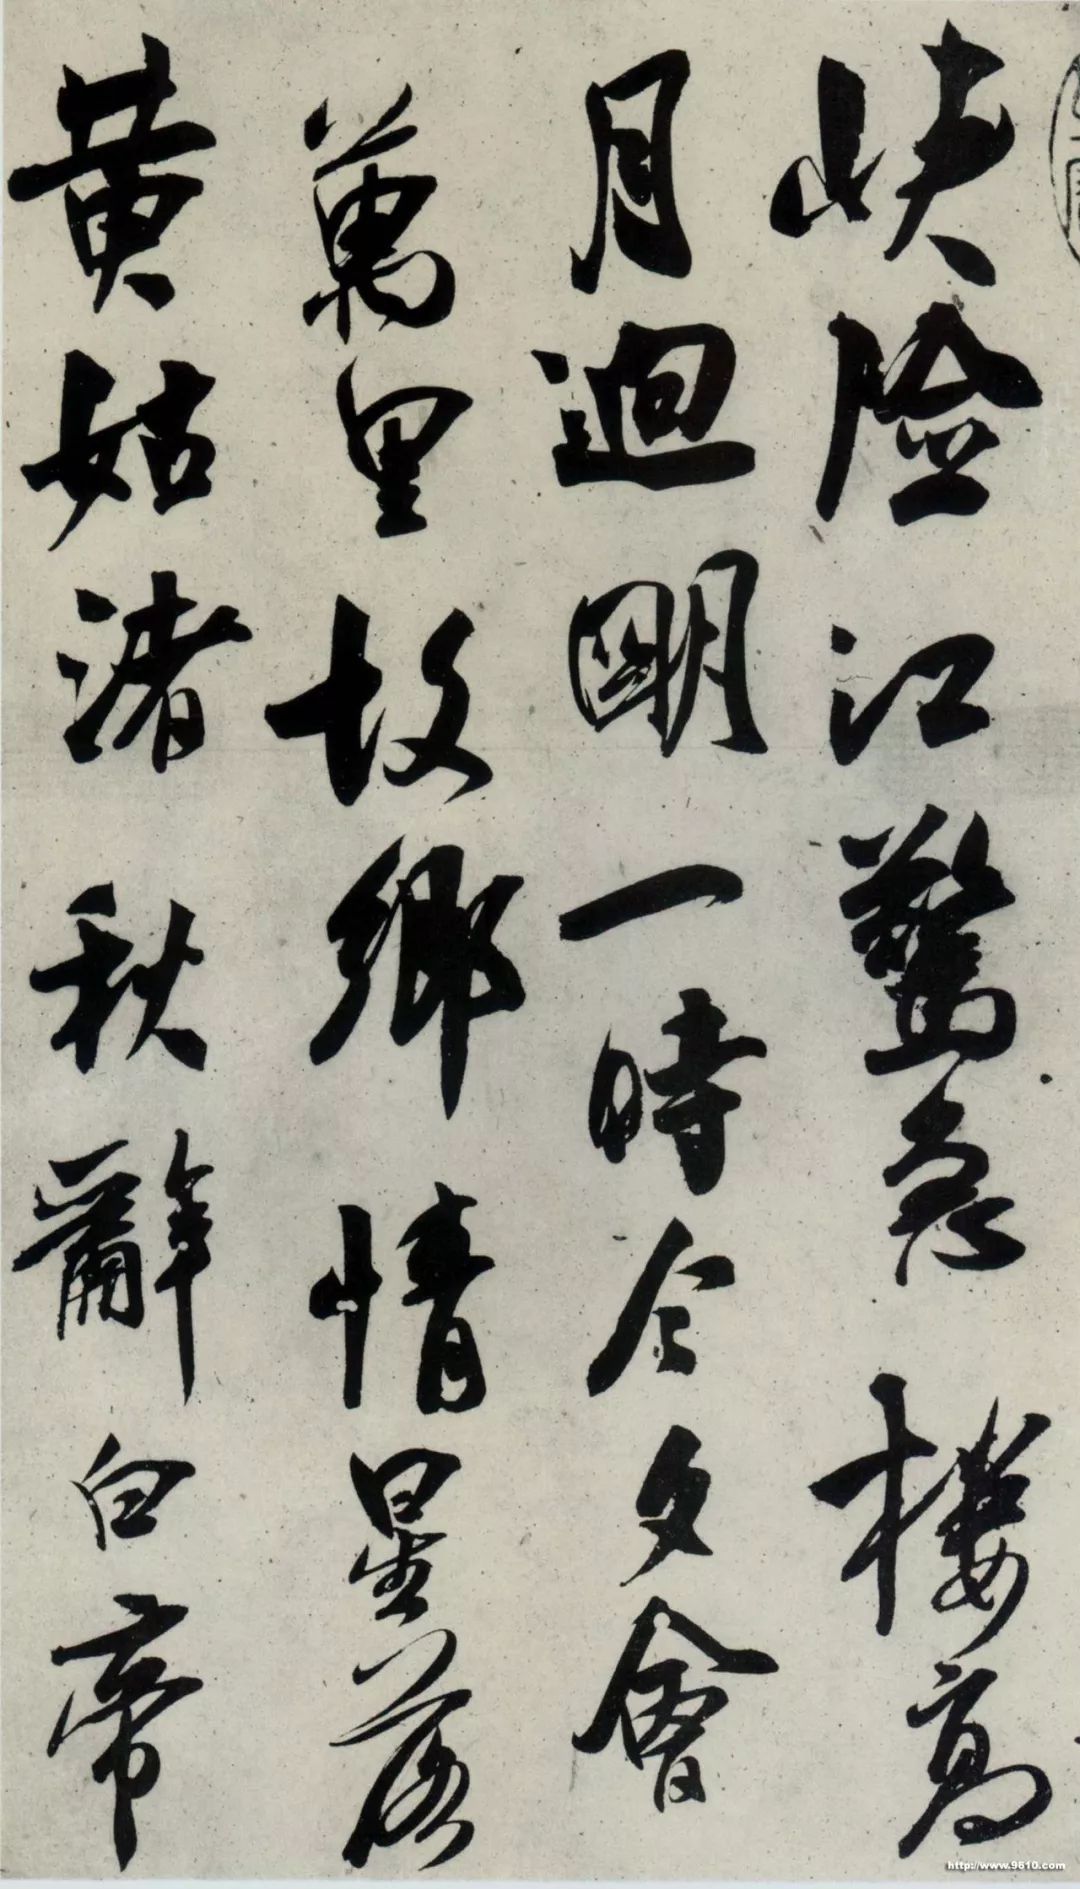 峡险江驚急楼高
月迥明一時今夕會
萬里故鄉情星落
黄姑渚秋辭白帝
http://www.9610.com